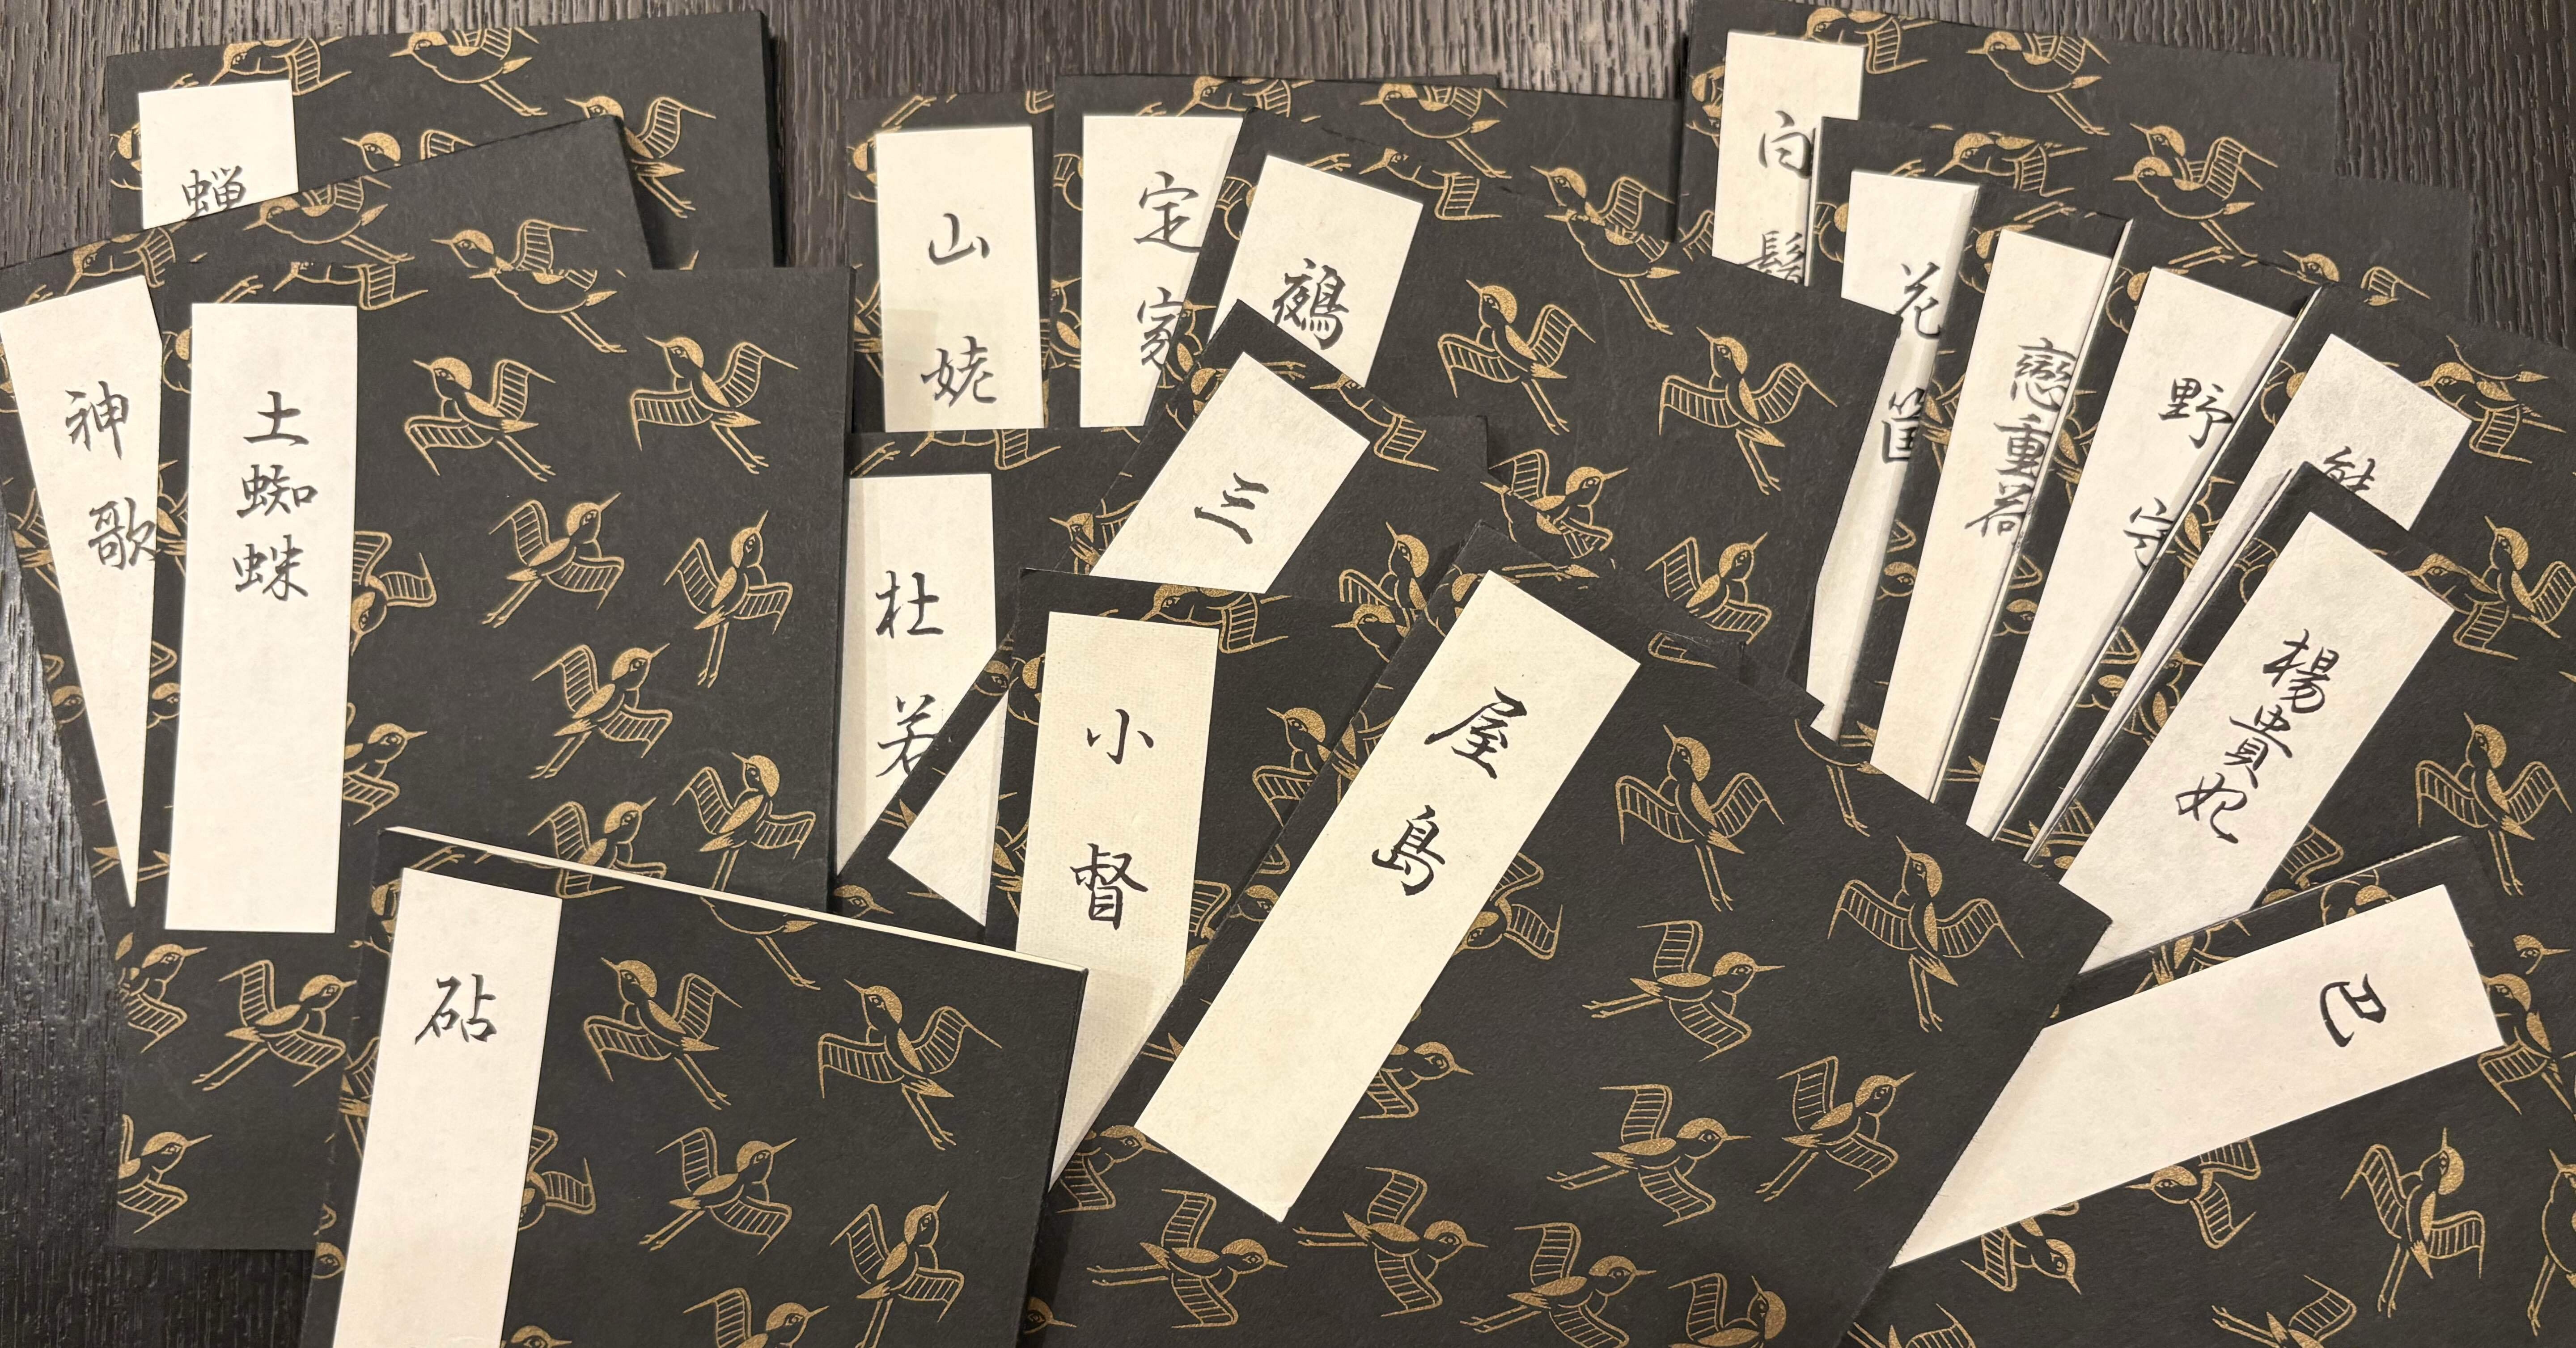 蝉
神歌
土蜘蛛
砧
山姥
定家
鵺
杜若
三
小督
屋島
白鬚
花筐
戀重荷
野守
楊貴妃
巴